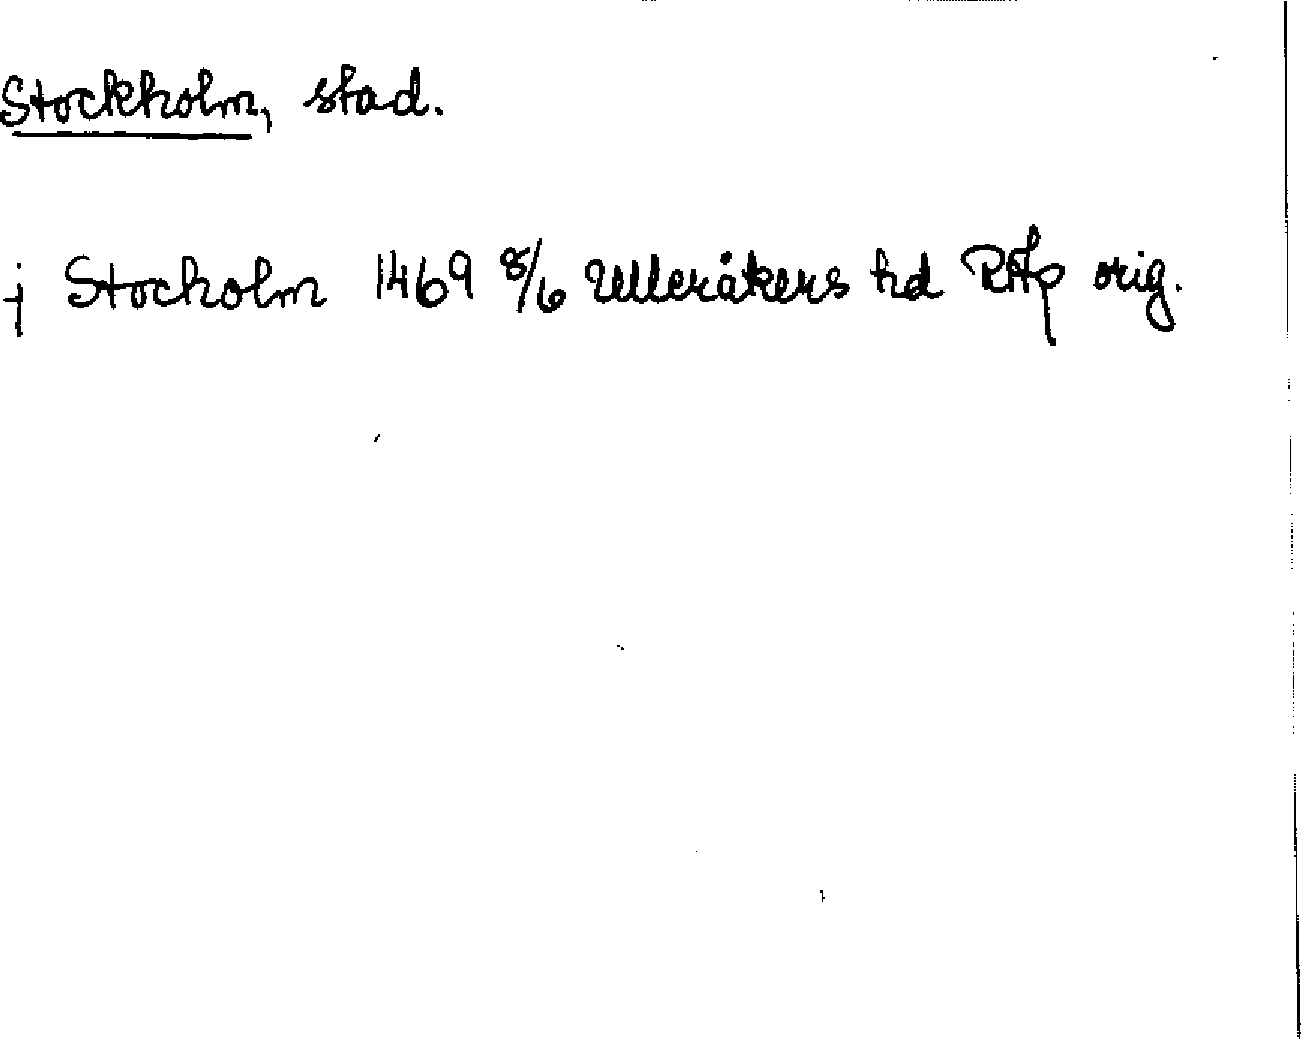 Stockholm, stad.
j Stocholm 1469 8/6 Ulleråkers hd RAp orig.